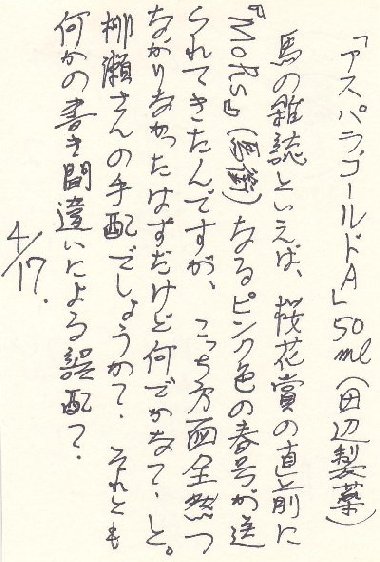 「アスパラゴールドA」50ml(田辺製薬)
馬の雑誌といえば、桜花賞の直前に
『Moks』(馬銜)なるピンク色の春号が送
られてきたんですが、こっち方面全然つ
ながりなかったはずだけど何でかなて、と。
柳瀬さんの手配でしょうか？それとも
何かの書き間違いによる誤配？
4/17.